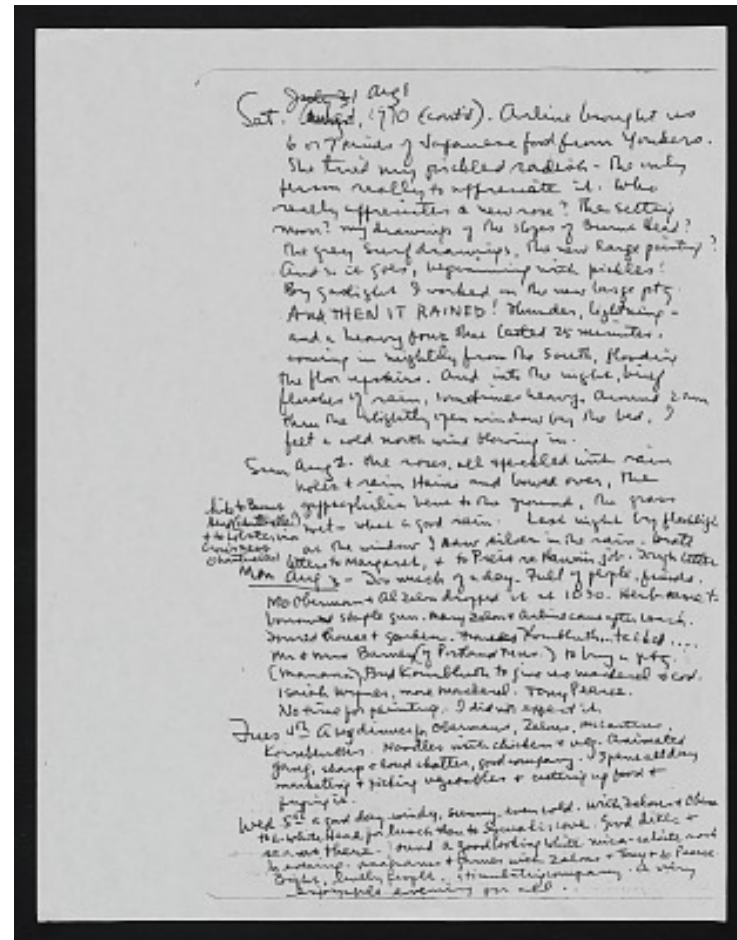 Aug 1
Sat. 1970 (cont'd). Arline brought us
6 or 7 kinds of Japanese food from Yonkers.
She tried my pickled radish - the only
person really to appreciate it. Who
really appreciates a new rose? The setting
moon? my drawings of the slopes of Burnt Head?
The grey surf drawings, the new large painting?
And so it goes, beginning with pickles!
By gaslight I worked on the new large ptg.
AND THEN IT RAINED! Thunder, lightning -
and a heavy pour that lasted 25 minutes.
coming in mightily from the South, flooding
the floor upstairs. And into the night, brief
flashes of rain, sometimes heavy. Around 2 am
thru the slightly open window by the bed, I
felt a cold north wind blowing in.
Sun Aug 2. The roses, all speckled with rain
holes + rain stains and bowed over, the
gypsophilia bent to the ground, the grass
wet - what a good rain. Last night by flashlight
at the window I saw silver in the rain. Wrote
letters to Margaret, + to Press re job.
Mon Aug 3 - Too much of a day. Full of people, friends.
Mo Oberman + Al Zalon dropped in at 1030. Herb came to
borrow staple gun. Mary Zalon + Arline came after lunch.
Toured house + garden. Frances Kornbluth talked....
Mr + Mrs Barney (of Portland) to buy a ptg.
(Manana), Bud Kornbluth to give us mackerel + cod.
Isaiah, more mackerel. Tony Pearce.
No time for painting. I did not expect it.
Tues 4th A big dinner for Obermans, Zalons,
Kornbluths. Noodles with chicken + veg. Animated
gang, sharp + loud chatter, good company. I spent all day
marketing + picking vegetables + cutting up food +
frying it.
Wed 5th a good day - windy, sunny, even cold. With Zalons +
to White Head for lunch then to Squeaker Cove. Good
there. Found a good looking white
evening with Zalons + Tony + Pearce
Bright, lively people, stimulating company. A very
enjoyable evening for all.